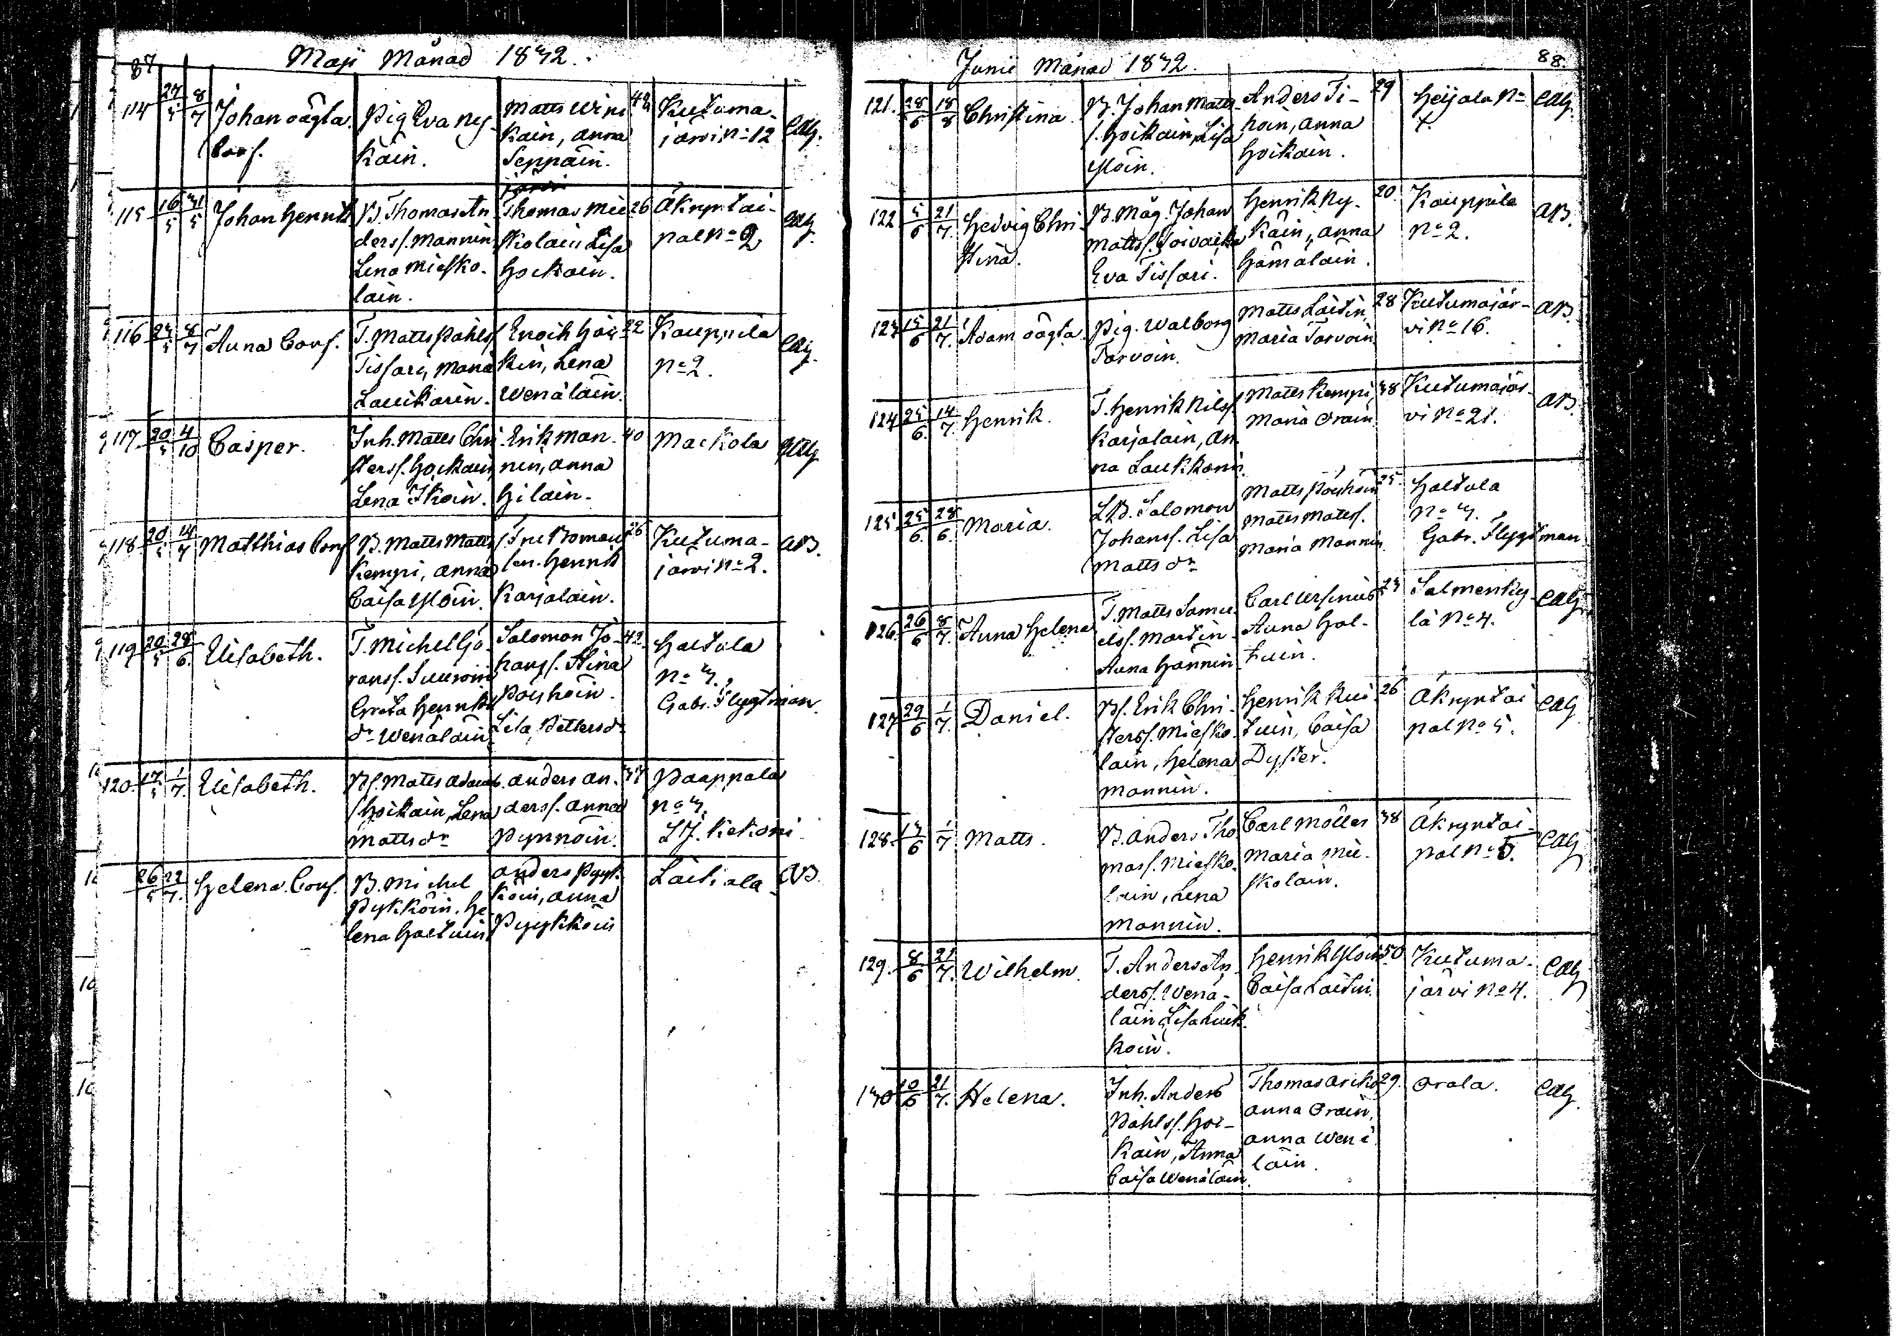 87
Maji Månad 1832.
114 27/5 8/7 Johan oägta Conf. Pig. Eva Ny-
käin.
Matts Wini
kain, Anna
Seppäin.
42 Kutuma-
järvi No 12
115 16/5 31/5 Johan Henrik B. Thomas An
derss. Mannin
Lena Miesko-
lain.
Thomas Mie
skolain Lisa
Hoikain.
26 Äkryntai-
pal No 2
116 24/5 8/7 Anna Conf. T. Matts Påhlss
Tissari, Maria
Laukarin.
Enoch Häi
kin, Lena
Wenäläin.
22 Kauppila
No 2.
117 20/5 4/10 Casper. Inh. Matts Chri
sterss. Hoikain,
Lena Ikoin.
Erik Man-
nin, Anna
Hilain.
40 Mackola
118 20/5 14/7 Matthias Conf B. Matts Matts
Kempi, Anna
Caisa Ylöin.
Henrik
Karjalain.
26 Kutuma-
järvi No 2.
AB.
119 20/5 28/6. Elisabeth. T. Michel Gö
ranss. Suuroin
Greta Henriks
dr Wenäläin.
Salomon Jo-
hanss. Stina
Pöyhöin.
Lisa Pettersdr
42 Haltula
No 3,
Gabr. Flygtman.
120 17/5 1/7. Elisabeth. Bs. Matts Adams
s Hoikain, Lena
Mattsdr
Anders An-
derss. Anna
Pynnöin.
37 Paappala
No 3.
LJ. Kekoni
26/5 22/7. Helena. Conf. B. Michel
Pykköin. He
lena Haltuin
Anders Pyyk
köin, Anna
Pyykköin
Laitiala
AB.
88.
Junii Månad 1832.
121. 28/6 18/8 Christina. B. Johan Matts
s. Hoikain, Lisa
Ylöin.
Anders Ti-
hoin, Anna
Hoikain.
29 Heijala No
122 5/6 21/7. Hedvig Chri
stina.
B. Måg. Johan
Mattss. Toivaika
Eva Tissari.
Henrik Ny-
käin, Anna
Hämäläin.
20. Kauppila
No 2.
AB.
123 15/6 21/7. Adam oägta Pig. Walborg
Tarvoin.
Matts Laitin,
Maria Tarvoin
28 Kutumajär-
vi No 16.
AB.
124 25/6. 14/7. Henrik. T. Henrik Nilss
Karjalain, An
na Laukkanin
Matts Kempi,
Maria Orain
38 Kutumajär-
vi No 21.
AB.
125 25/6. 28/6. Maria. LB. Salomon
Johanss. Lisa
Mattsdr
Matts Pöyhöin
Matts Mattss.
Maria Mannin
25. Haltula
No 3.
Gabr. Flygtman
126 26/6 8/7. Anna Helena T. Matts Samu
elss. Martin
Anna Hännin
Carl Ursinus
Anna Hal-
tuin.
23 Salmenky
lä No 4.
127 29/6 1/7. Daniel. Bs. Erik Chri-
sterss. Miesko
lain, Helena
Mannin.
Henrik Kui
tuin, Caisa
Dyster.
26 Äkryntai
pal No 5.
128 13/6 1/7 Matts. B. Anders Tho
mass. Miesko-
lain, Lena
Mannin.
Carl Möller
Maria Mie-
skolain.
38 Äkryntai-
pal No 5.
129. 8/6 21/7. Wilhelm. T. Anders An
derss. Wenä-
läin Lisa Luik
koin.
Henrik Ylöin
Caisa Laitin.
50 Kutuma-
järvi No 4.
130 10/6 21/7. Helena. Inh. Anders
Påhlss. Hoi-
kain, Anna
Caisa Wenäläin.
Thomas Ariko
Anna Orain,
Anna Wenä
läin.
29. Orala.